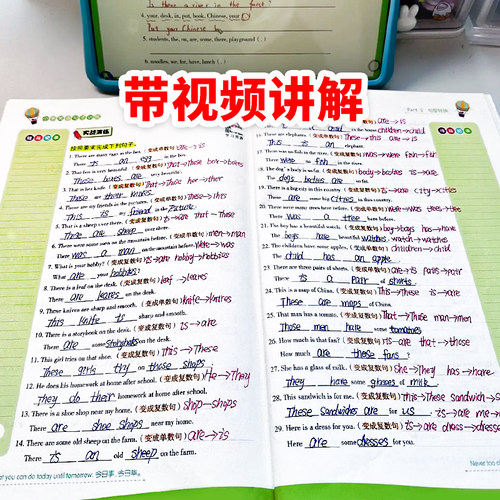 Is there a river in the forest?
4. your, desk, in, put, book, Chinese, your
Put your Chinese
5. students, the, on, are, some, there, playground (.)
6. noodles, we, for, have, lunch (.)
带视频讲解
实战演练
按照要求完成下列句子。
1. There are many eggs in the box. (变成单数句) are→is
There is an egg in the box.
2. That fox is very beautiful. (变成复数句) That→those
Those are very beautiful.
3. That is her knife. (变成复数句) That→Those
Those are their knives.
4. These are my friends in the pictures. (变成单数句) These→this
This is my friend in the picture.
5. That is a sheep over there. (变成复数句) is→are that→these
over there.
6. There were some men on the mountain before. (变成单数句) men→man
There was a man on the mountain before. were→was
7. What is your hobby? (变成复数句) is→are hobby→hobbies
What are your hobbies?
8. There is a leaf on the desk. (变成复数句) leaf→leaves
There are leaves on the desk.
9. These knives are sharp and smooth. (变成单数句) knives→knife
This knife is sharp and smooth.
10. There is a storybook on the desk. (变成复数句) is→are
There are some storybooks on the desk.
11. This girl tries on that shoe. (变成复数句) This→These
These girls try on those shops.
12. He does his homework at home after school. (变成复数句) He→They
They do their homework at home after school.
13. There is a shoe shop near my home. (变成复数句) shop→shops
There are shoe shops near my home.
14. There are some old sheep on the farm. (变成单数句) are→is
There is an old sheep on the farm.
What you can do today until tomorrow. 今日事,今日毕。
children→child
(变成复数句) This→these is→are
This is an elephant.
(变成单数句) was→were fish→fish
There were fish in the
(变成复数句) body→bodies is→are
19. There is a big city in this country. (变成复数句) is→are city→cities
There are some big cities in this country.
20. There were many trees here before. (变成单数句) were→was trees→tree
There was a tree here before.
21. The boy has a beautiful watch. (变成复数句) boy→boys has→have
The boys have beautiful watches. watch→watches
22. The children have some apples. (变成单数句) children→child
The child has an apple.
23. There are three pairs of shorts. (变成单数句) are→is pairs→pair
There is a pair of shorts.
24. This is a map of China. (变成复数句) This→These is→are
These are maps of China.
25. That man has a tomato. (变成复数句) That→Those man→men
Those men have some tomatoes.
26. How much is that fan? (变成复数句) is→are that→those
How much are these fans?
27. She has a glass of milk. (变成复数句) She→They has→have
they have some glasses of milk.
28. This sandwich is for me. (变成复数句) this→These sandwich→
These Sandwiches are for us. is→are me→
29. Here is a dress for you. (变成复数句) is→are dress→dresses
Here are some dresses for you.